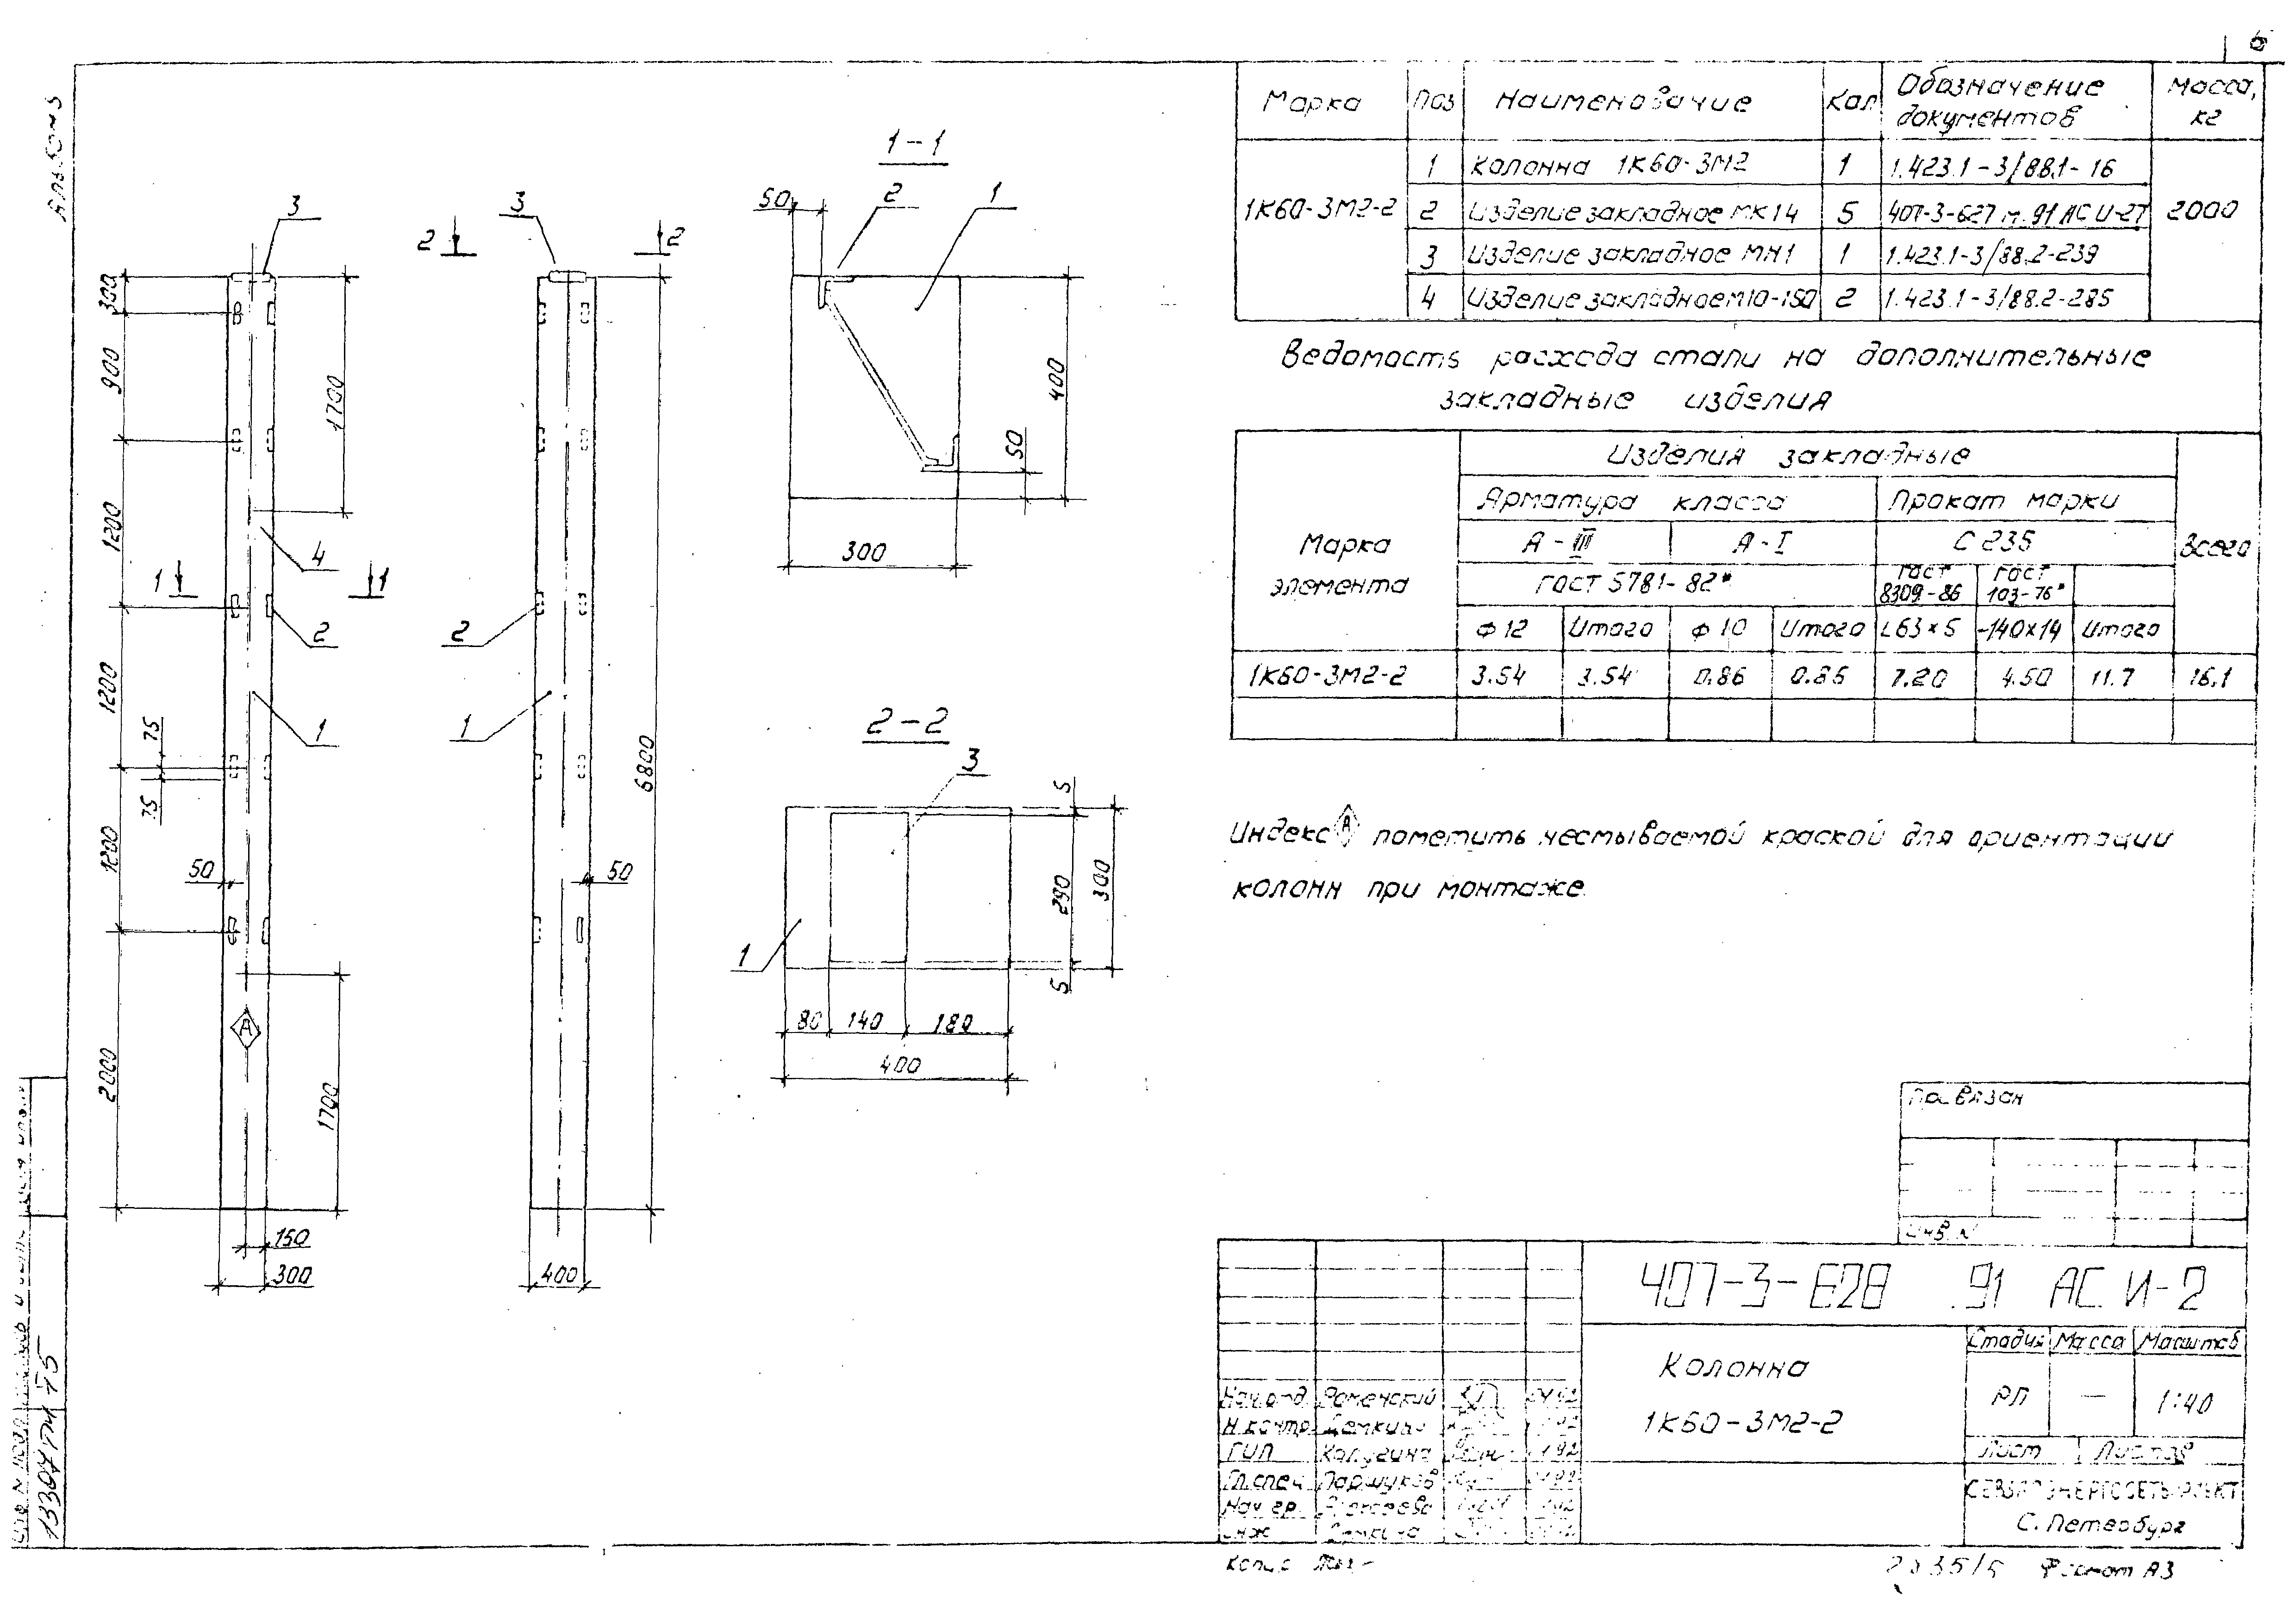 Альбом 5
Марка Поз Наименование Кол Обозначение документов Масса, кг
1К60-3М2-2 2000
1 Колонна 1К60-3М2 1 1.423.1-3/88.1-16
2 Изделие закладное МК14 5 407-3-627 м.91 АС И-27
3 Изделие закладное МН1 1 1.423.1-3/88.2-239
4 Изделие закладное М10-150 2 1.423.1-3/88.2-285
Ведомость расхода стали на дополнительные
закладные изделия
Марка элемента
Изделия закладные
Всего
Арматура класса Прокат марки
А-III А-I С235
ГОСТ 5781-82* ГОСТ 8309-86 ГОСТ 103-76*
Ф12 Итого Ф10 Итого L63×5 -140×14 Итого
1К60-3М2-2 3.54 3.54 0.86 0.86 7.20 4.50 11.7 16.1
Индекс А пометить несмываемой краской для ориентации
колонн при монтаже.
3
300
900
1200
1200
1200
2000
1700
1700
4
1 1
2
1
75
75
50
А
150
300
2 2
3
2
1
50
6800
400
1-1
50
2
1
400
50
300
2-2
3
1
5
290
5
300
80 140 180
400
Привязан
Инв. N
407-3-628 .91 АС И-2
Колонна
1К60-3М2-2
Стадия Масса Масштаб
РП — 1:40
Лист Листов
СЕВЗАПЭНЕРГОСЕТЬПРОЕКТ
С. Петербург
Нач. отд. Роменский
Н. контр.
ГИП Калугина
Гл. спец Паршуков
Нач. гр.
Инж
13307тм Т5
Формат А3